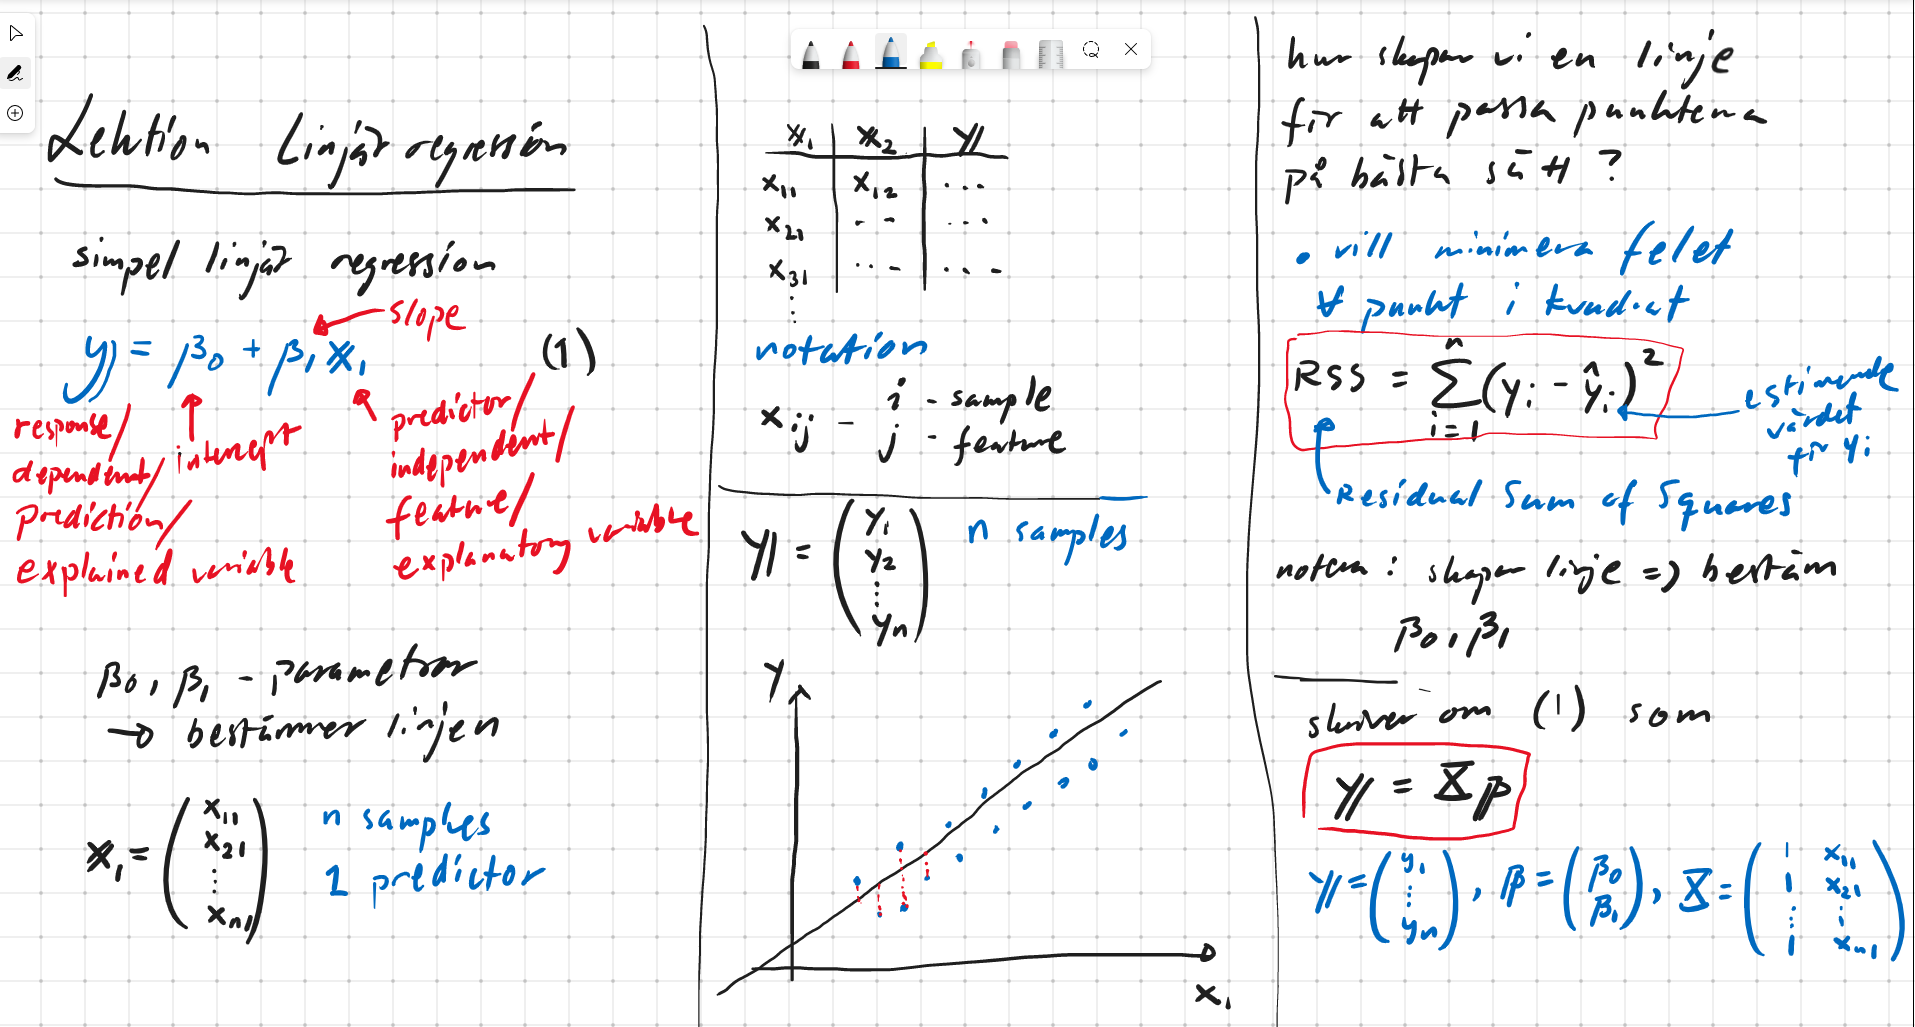 Lektion Linjär regression
simpel linjär regression
y = β₀ + β₁ x₁ (1)
slope
response/
dependent/
prediction/
explained variable
intercept
predictor/
independent/
feature/
explanatory variable
β₀, β₁ - parametrar
→ bestämmer linjen
x₁ = (x₁₁ x₂₁ ⋮ xₙ₁)
n samples
1 predictor
x₁ x₂ y
x₁₁ x₁₂ ...
x₂₁ -- ...
x₃₁ ..- ...
⋮
notation
xᵢⱼ - i - sample
j - feature
y = (y₁ y₂ ⋮ yₙ)
n samples
y
x₁
hur skapar vi en linje
för att passa punkterna
på bästa sätt ?
• vill minimera felet
∀ punkt i kvadrat
RSS = Σᵢ₌₁ⁿ (yᵢ - ŷᵢ)²
estimerade
värdet
för yᵢ
Residual Sum of Squares
notera : skapar linje => bestäm
β₀, β₁
skriver om (1) som
y = Xβ
y = (y₁ ⋮ yₙ), β = (β₀ β₁), X = (1 x₁₁ 1 x₂₁ ⋮ ⋮ 1 xₙ₁)